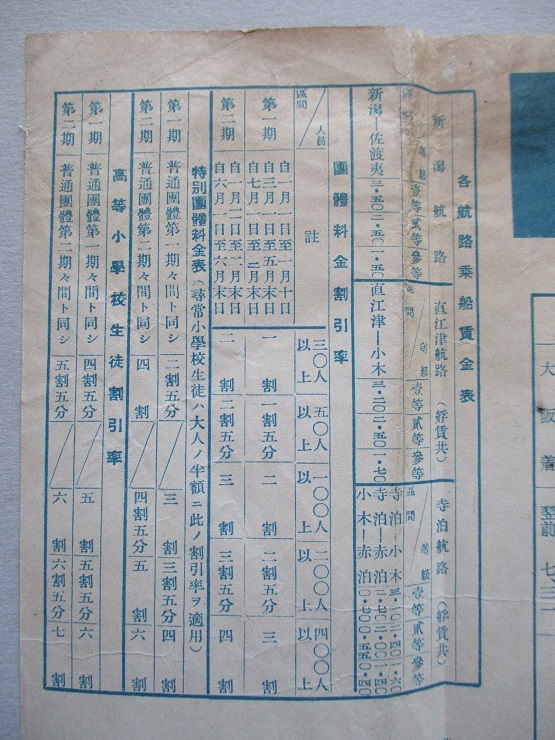 各航路乗船賃金表
新潟航路
等級 壹等 貳等 參等
新潟―佐渡夷 三・五〇 二・五〇 一・五〇
直江津航路(艀賃共)
區間 等級 壹等 貳等 參等
直江津―小木 三・二〇 二・五〇 一・七〇
寺泊航路(艀賃共)
區間 等級 壹等 貳等 參等
寺泊―小木 三・一〇 二・四〇 一・六〇
寺泊―赤泊
小木―赤泊
團體料金割引率
區間/人員 註 三〇人以上 五〇人以上 一〇〇人以上 二〇〇人以上 四〇〇人以上
第一期 自一月一日至一月十日 自三月一日至五月末日 自七月一日至 月末日 一割 一割五分 二割 二割五分 三割
第二期 自 月一日至二月末日 自六月一日至六月末日 二割 二割五分 三割 三割五分 四割
特別團體料金表(尋常小學校生徒ハ大人ノ半額ニ此ノ割引率ヲ適用)
第一期 普通團體第一期々間ト同シ 二割五分 三割 三割五分 四割
第二期 普通團體第二期々間ト同シ 四割 四割五分 五割 六割
高等小學校生徒割引率
第一期 普通團體第一期々間ト同シ 四割五分 五割 五割五分 六割
第二期 普通團體第二期々間ト同シ 五割五分 六割 六割五分 七割
大阪着 翌前 七・三